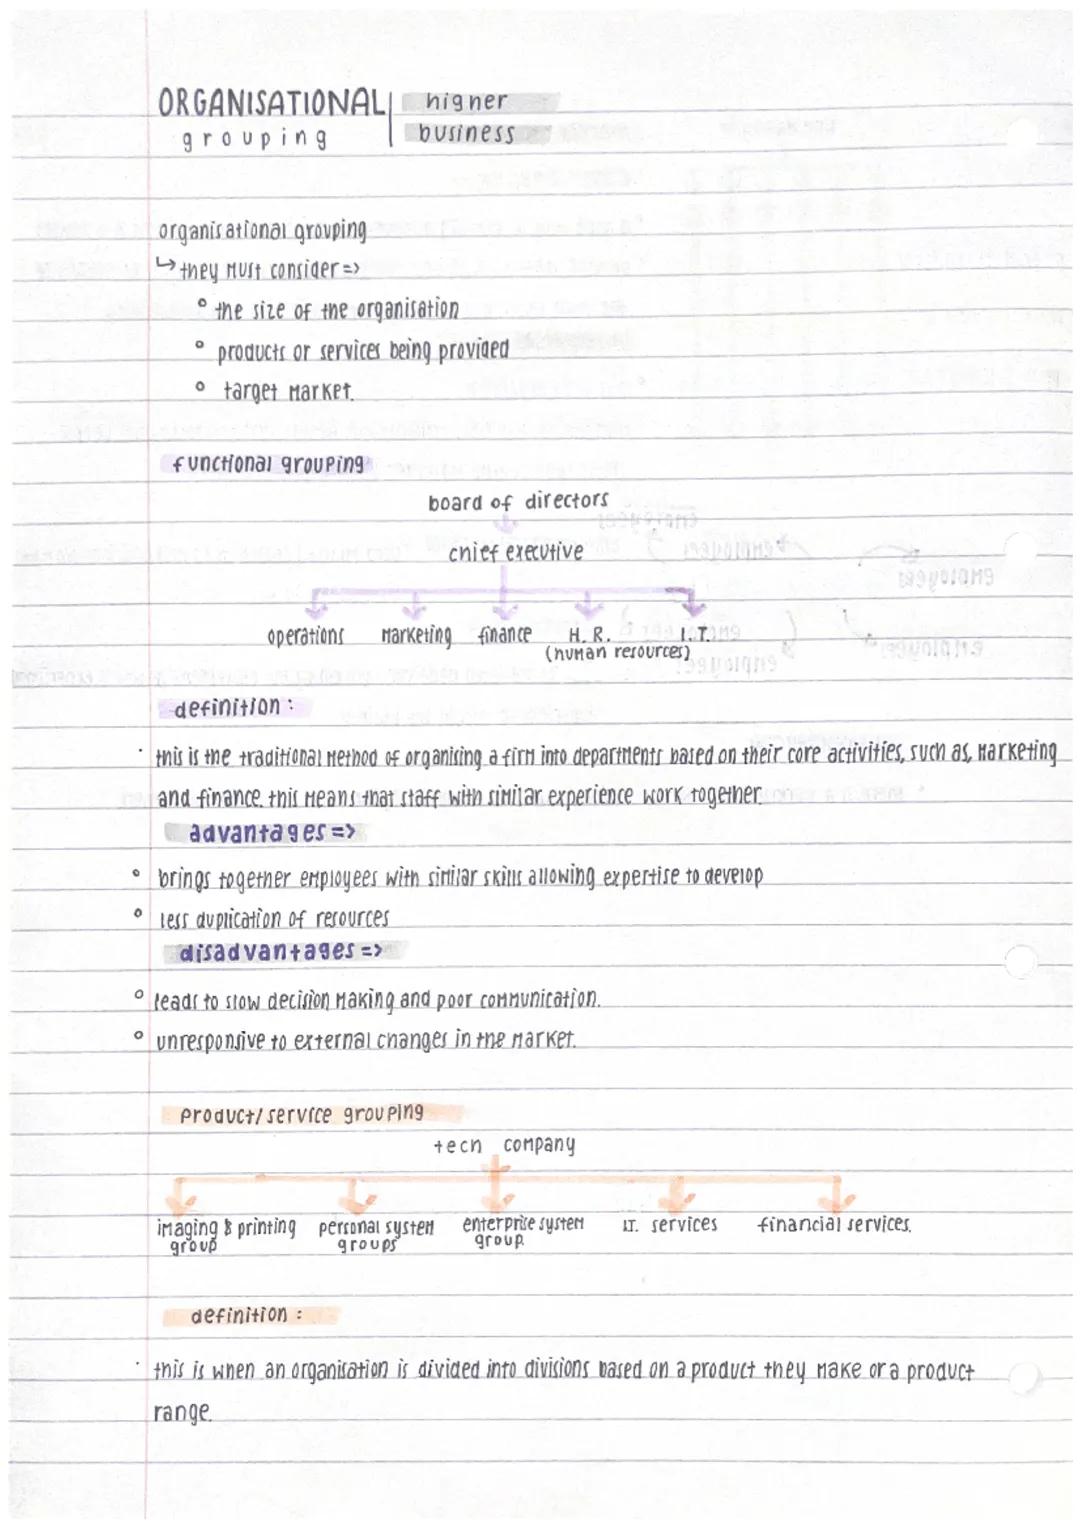 ORGANISATIONAL
grouping
higher
business
organisational grouping
↳ they must consider =>
° the size of the organisation
° products or services being provided
° target market.
functional grouping
board of directors
chief executive
operations marketing finance H.R. I.T.
(human resources)
definition :
· this is the traditional method of organising a firm into departments based on their core activities, such as, marketing
and finance. this means that staff with similar experience work together.
advantages =>
° brings together employees with similar skills allowing expertise to develop
° less duplication of resources
disadvantages =>
° leads to slow decision making and poor communication.
° unresponsive to external changes in the market.
product/service grouping
tech company
imaging & printing group
personal system groups
enterprise system group.
I.T. services
financial services.
definition :
· this is when an organisation is divided into divisions based on a product they make or a product
range.